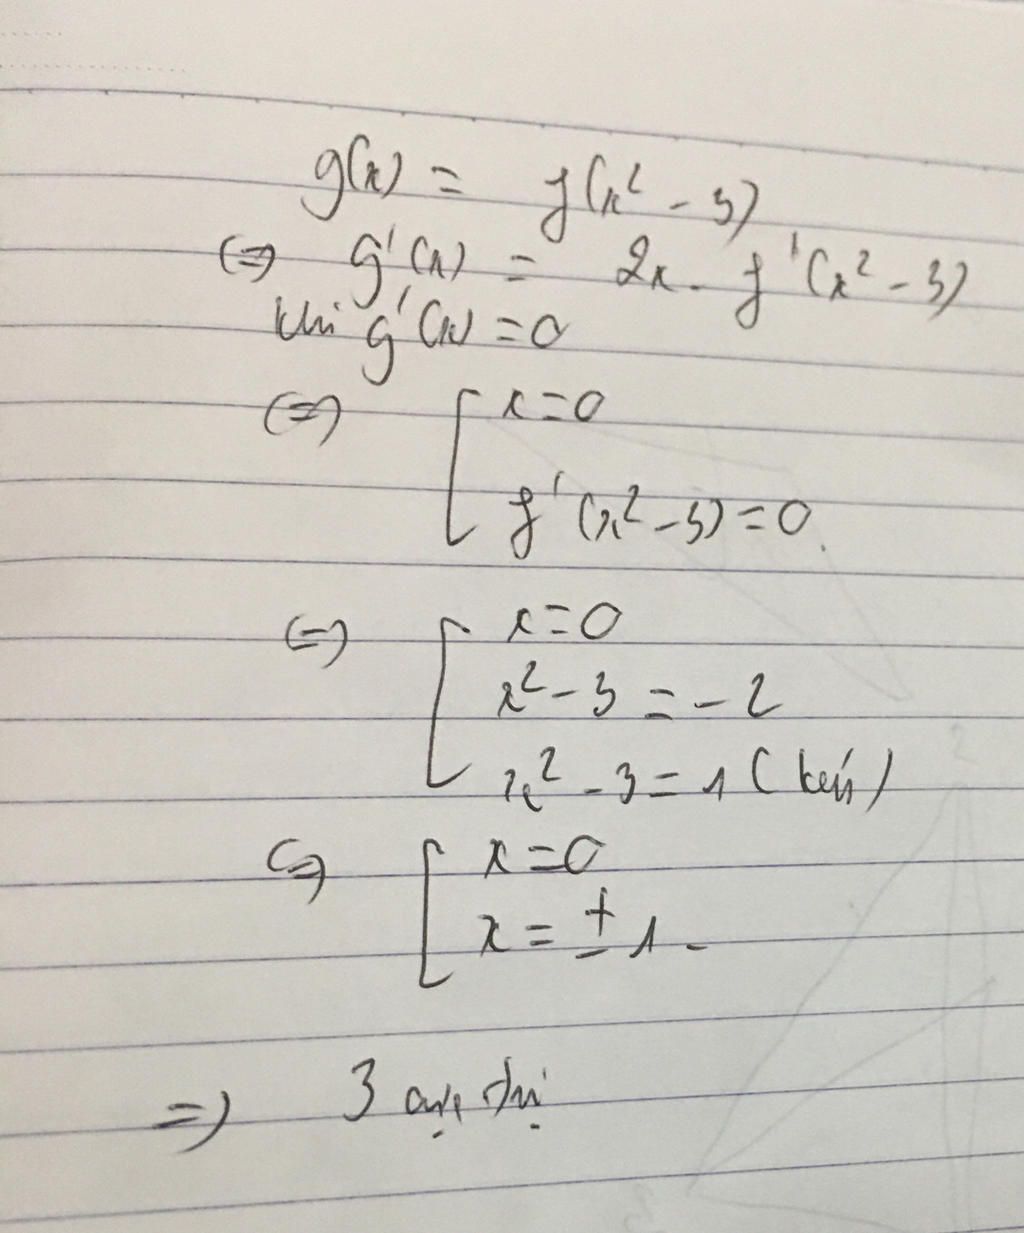 g(x) = f(x² - 3)
⇔ g'(x) = 2x. f'(x² - 3)
khi g'(x) = 0
⇔ [ x = 0
f'(x² - 3) = 0.
⇔ [ x = 0
x² - 3 = -2
x² - 3 = 1 (kép)
⇔ [ x = 0
x = ± 1.
⇒ 3 cực trị